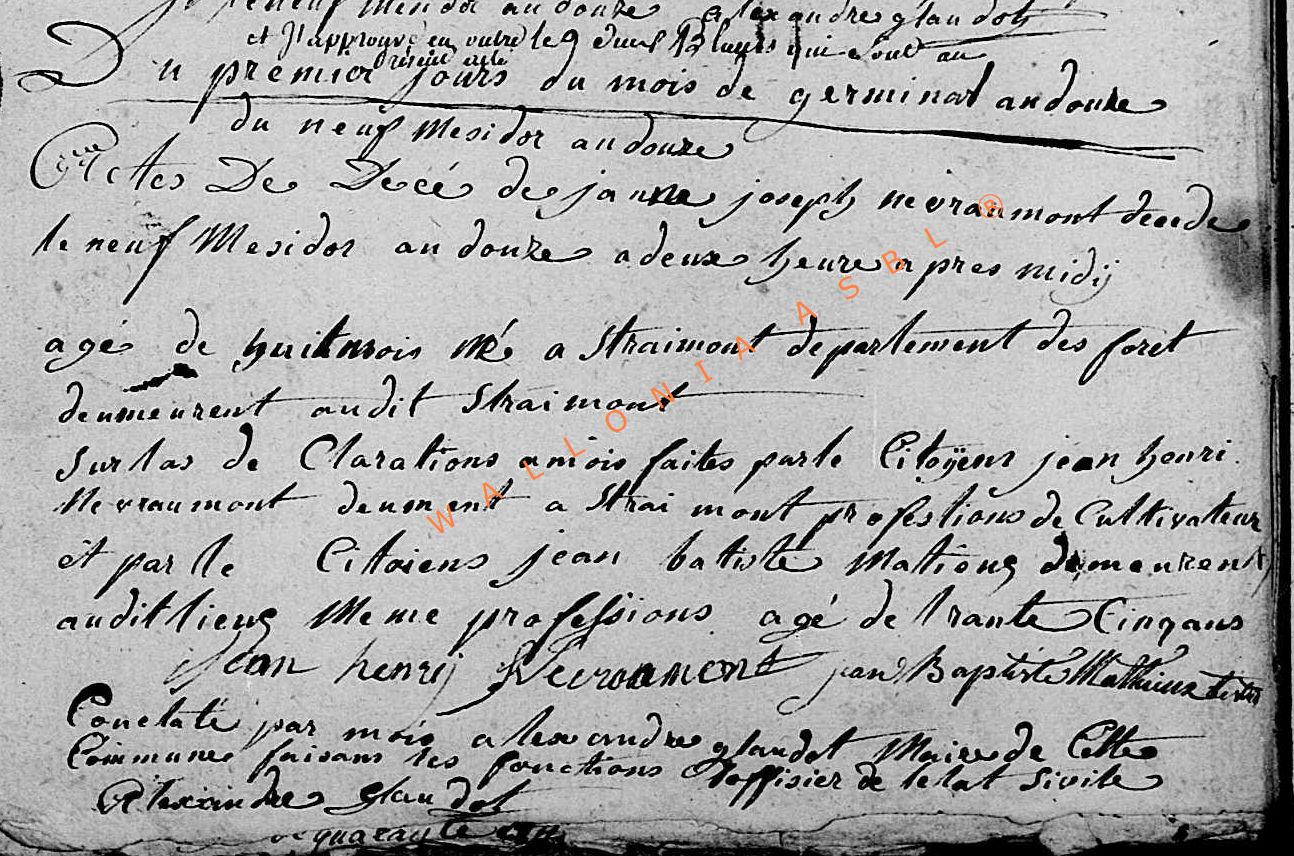 neuf Mesidor an douze Alexandre glaudot
et J'approuve en outre le 9 qui sont au
present acte
Du premier jours du mois de germinal an douze
du neuf Mesidor an douze
Actes De Decé de janne joseph nevraumont decede
le neuf Mesidor an douze a deux heure apres midij
agé de huit mois né a Straimont departement des foret
deumeurent audit Straimont
sur las de Clarations a mois faites par le Citoÿens jean henri
Nevraumont deument a Strai mont profestions de Cultivateur
et par le Citoiens jean batiste Matieus demeurent
audit lieus Meme professions agé de trante Cinq ans
jean henrij Nevraumont jean Baptiste Mathieux
Constaté par mois alexandre glaudot Maire de Cette
Commune faisans les fonctions D'offisier de letat Sivile
Alexandre Glaudot
quarante
WALLONIA ASBL ®